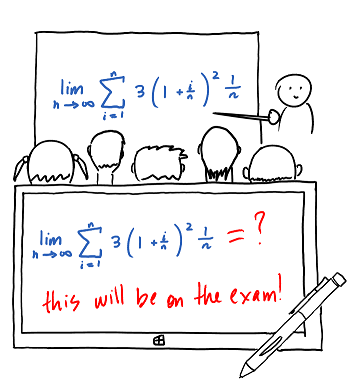 lim n→∞ n∑i=1 3(1+i/n)² 1/n
lim n→∞ n∑i=1 3(1+i/n)² 1/n =?
this will be on the exam!